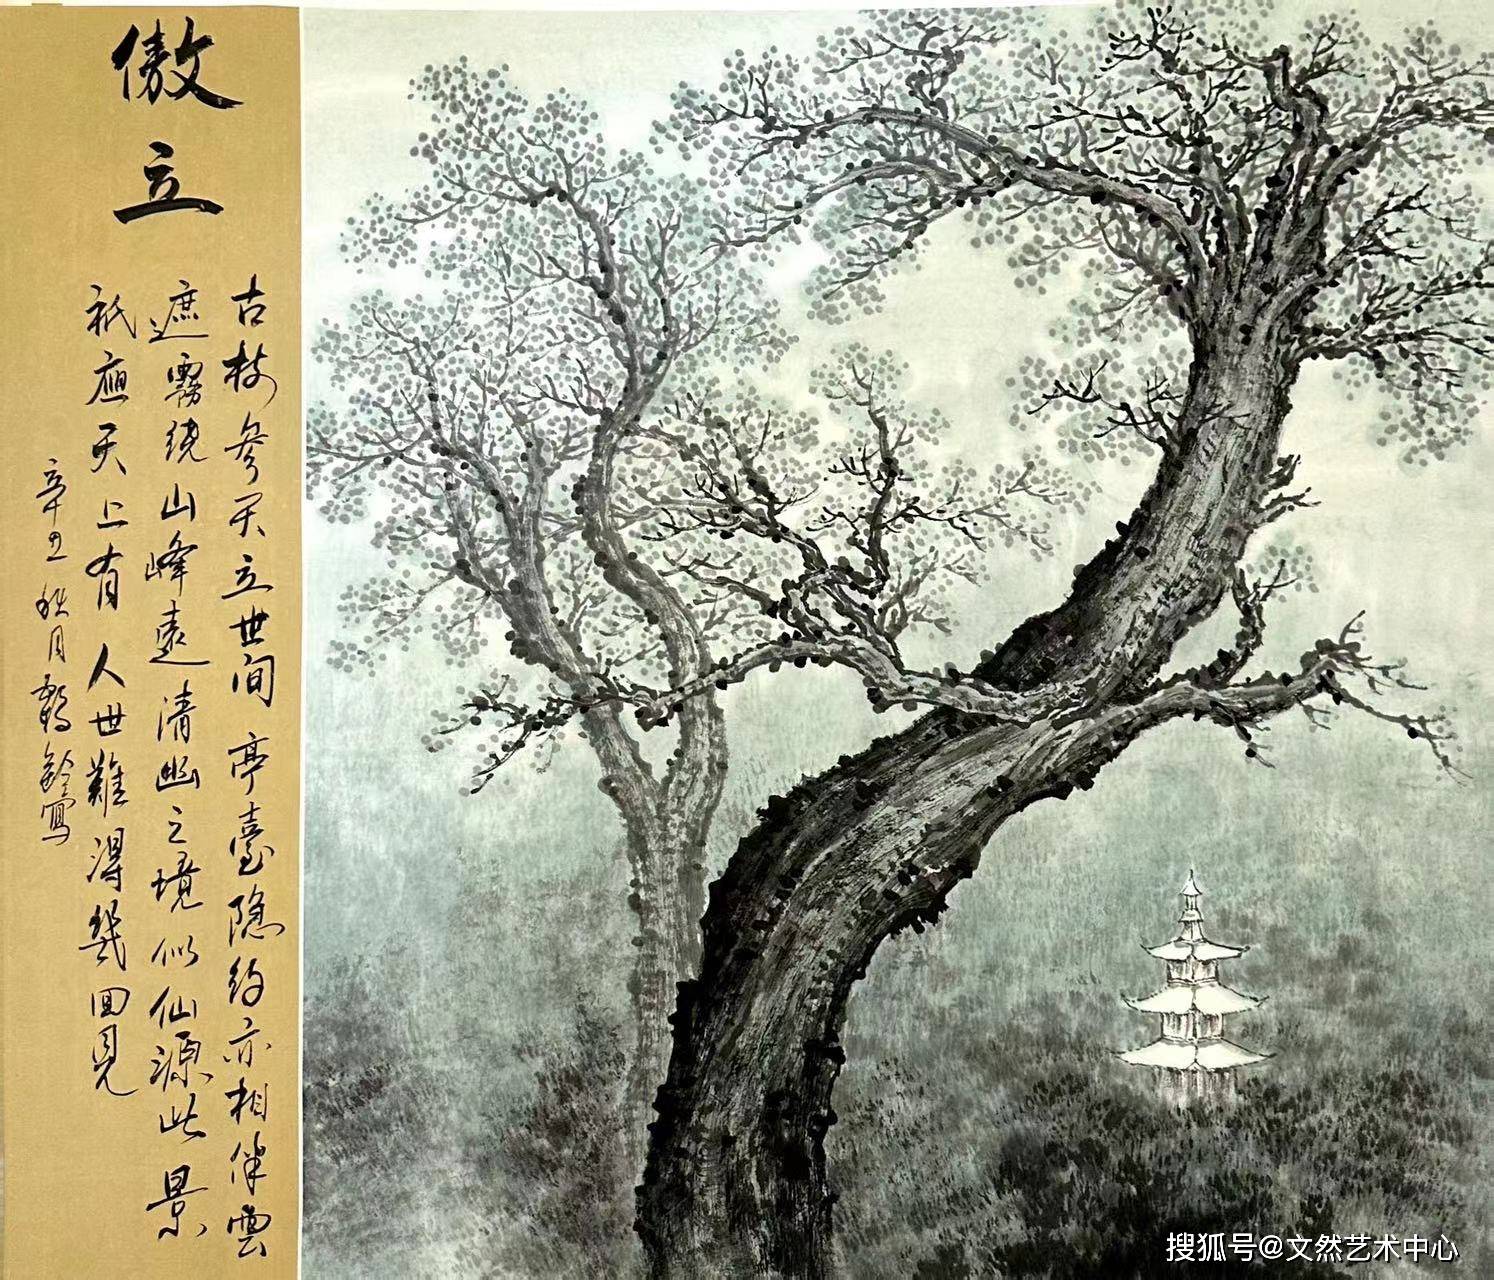 傲立
古树参天立世间 亭臺隐约亦相伴雲
遮霧绕山峰遠清幽之境似仙源此景
祇應天上有人世難得幾回見
辛丑秋月鹤龄寫
搜狐号@文然艺术中心